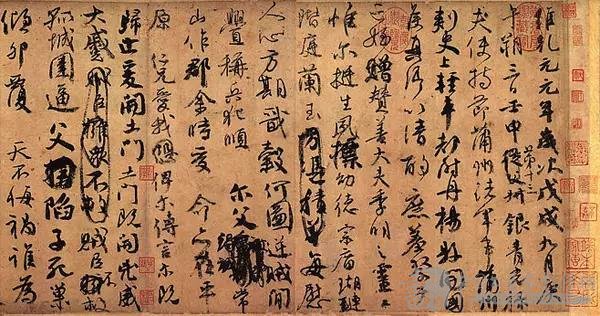 維乾元元年歲次戊戌九月庚
午朔三日壬申第十三叔銀青光祿
夫使持節蒲州諸軍事蒲州
刺史上輕車都尉丹楊縣開國
侯真卿以清酌庶羞祭于
亡姪贈贊善大夫季明之靈曰
惟爾挺生夙標幼德宗廟瑚璉
階庭蘭玉方憑積善每慰
人心方期戩穀何圖逆賊閒
釁稱兵犯順爾父竭誠常
山作郡余時受命亦在平
原仁兄愛我俾爾傳言爾既
歸止爰開土門土門既開凶威
大蹙賊臣擁眾不救賊臣不救
孤城圍逼父陷子死巢
傾卵覆天不悔禍誰為